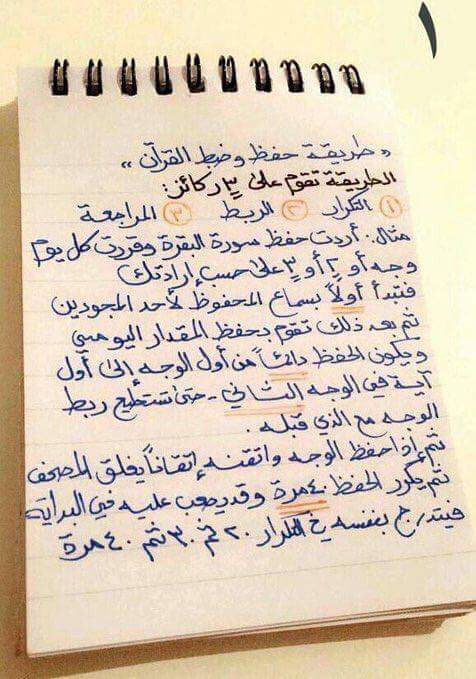 ١
« طريقة حفظ وضبط القرآن »
الطريقة تقوم على ٣ ركائز:
① التكرار ② الربط ③ المراجعة
مثال: أردت حفظ سورة البقرة وقررت كل يوم
وجه أو ٢ أو ٣ على حسب إرادتك
فتبدأ أولاً بسماع المحفوظ لأحد المجودين
ثم بعد ذلك تقوم بحفظ المقدار اليومي
ويكون الحفظ دائماً من أول الوجه إلى أول
آية في الوجه الثاني - حتى تستطيع ربط
الوجه مع الذي قبله.
ثم إذا حفظ الوجه واتقنه إتقاناً يغلق المصحف
ثم يكرر الحفظ ٤٠ مرة وقد يصعب عليه في البداية
فيتدرج بنفسه في التكرار ٢٠ ثم ٣٠ ثم ٤٠ مرة